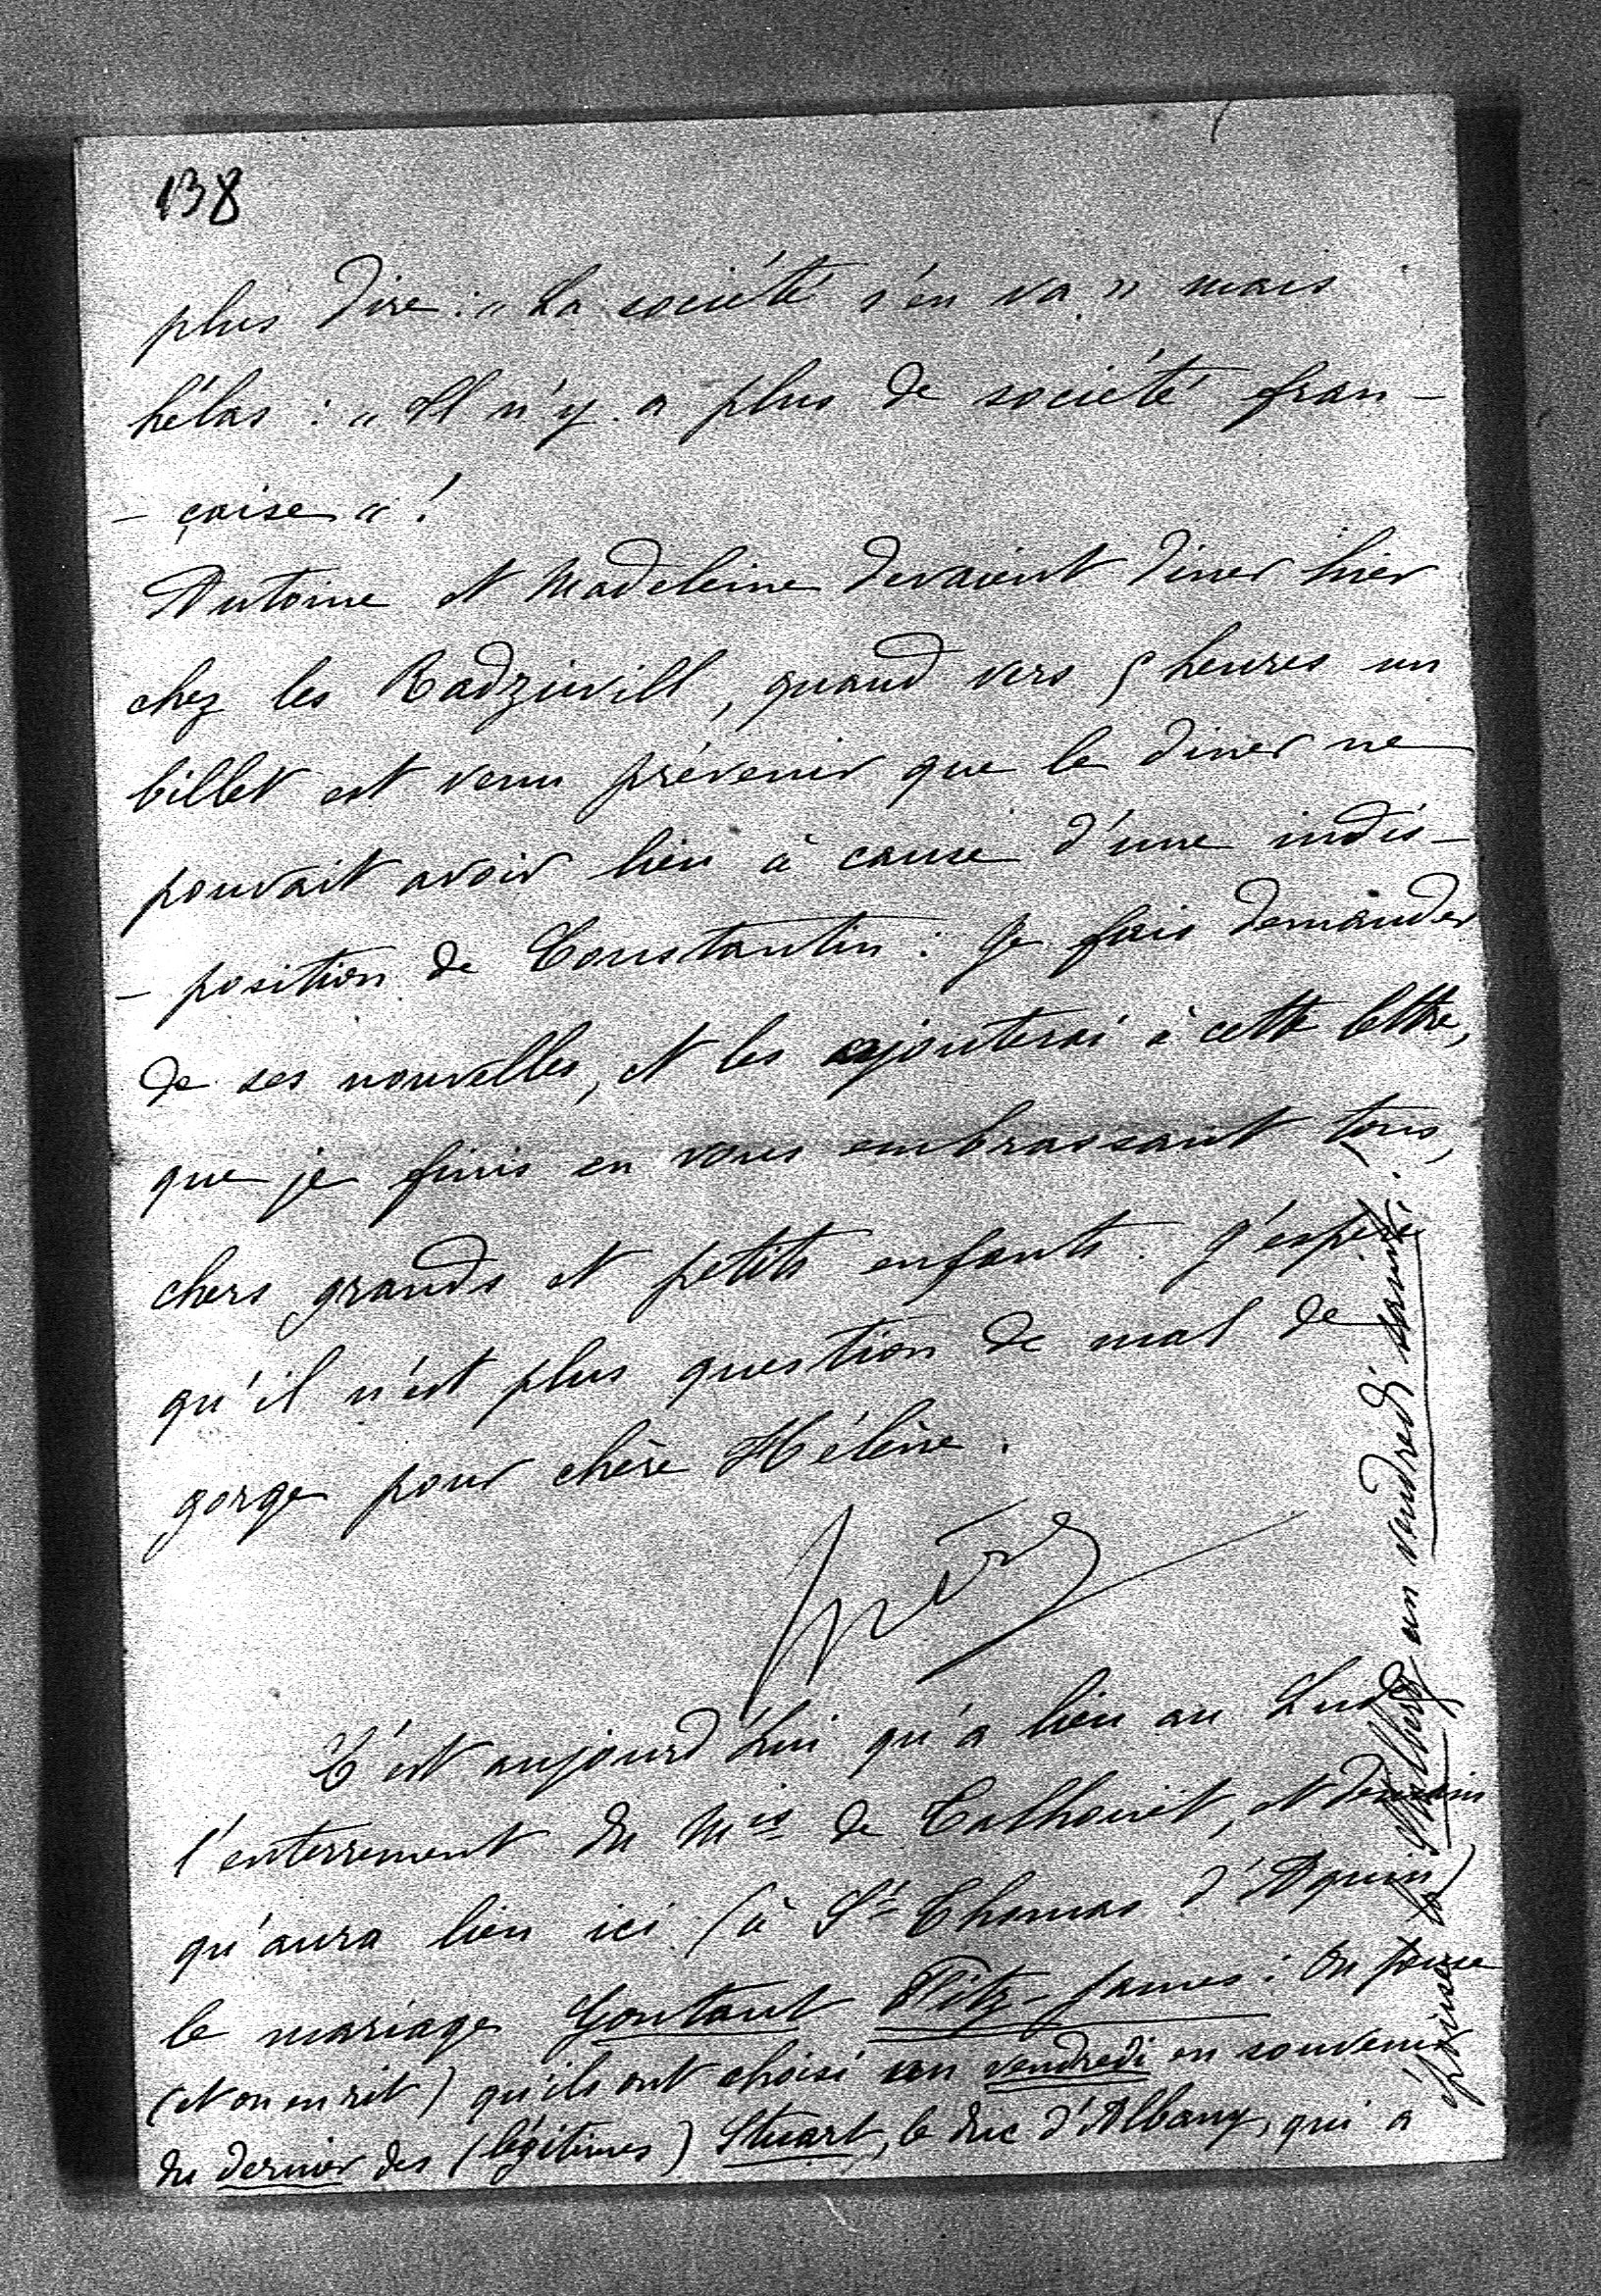 138
plus dire : „ La société s'en va " mais
hélas : „ Il n'y a plus de société fran-
- çaise " !
Antoine et Madeleine devaient dîner hier
chez les Radziwill, quand vers 5 heures un
billet est venu prévenir que le dîner ne
pouvait avoir lieu à cause d'une indis-
- position de Constantin : Je fais demander
de ses nouvelles, et les ajouterai à cette lettre,
que je finis en vous embrassant tous,
chers grands et petits enfants. J'espère
qu'il n'est plus question de mal de
gorge pour chère Hélène.
C'est aujourd'hui qu'a lieu au Lude
l'enterrement du Mis de Talhouët, et demain
qu'aura lieu ici (à St Thomas d'Aquin)
le mariage Gontaut Fitz-James : On pense
(et on en rit) qu'ils ont choisi un vendredi en souvenir
du dernier des (légitimes) Stuart, le duc d'Albany, qui a
épousé la Stolberg un vendredi saint.